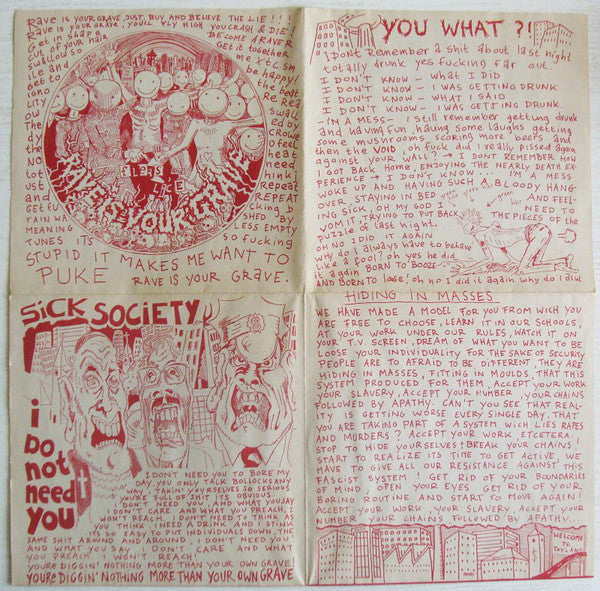 Rave is your grave, just, buy and believe the lie!!!
Rave is your grave, you'll fly high you crash & die!
Get in shape
BECOME A RAVER
out of your hair
Get it together
swallow so
me XTC sm
ile and
be happy!
get to
RAVE IS YOUR GRAVE
LET'S
LIE
REPEAT
REPEAT
MEANING
LESS EMPTY
TUNES ITS
so fucking
STUPID IT MAKES ME WANT TO
PUKE
RAVE IS YOUR GRAVE.
YOU WHAT ?!
I Dont Remember a shit about last night
totally drunk yes fucking far out
I DON'T KNOW - WHAT I DID
I DON'T KNOW - I WAS GETTING DRUNK
I DON'T KNOW - WHAT I SAID
I DON'T KNOW - I WAS GETTING DRUNK.
-IN A MESS- I still remember getting drunk
and having fun, having some laughs getting
some mushrooms scoring more beers and
then the VOID, oh fuck did I really pissed again
against YOUR WALL? → I DONT REMEMBER HOW
I GOT BACK HOME, ENJOYING THE NEARLY DEATH EX-
PERIENCE → I DON'T KNOW... I'M A MESS
WOKE UP AND HAVING SUCH A BLOODY HANG-
OVER, STAYING IN BED
AND FEEL-
ING SICK, OH MY GOD I
NEED TO
VOMIT, TRYING TO PUT BACK
THE PIECES OF THE
PUZZLE of last night
OH NO I DID IT AGAIN
Why do I always have to behave
like a fool? oh yes he did
it again BORN TO BOOZE
AND BORN TO lose! oh no I did it again why do I alw
SICK SOCIETY
i
Do
not
need
YOU
I DON'T NEED YOU TO BORE MY
DAY YOU ONLY TALK BOLLOCKS ANY
WAY, TAKIN' YOURSELVES SO SERIOUS
YOU'RE FULL OF SHIT ITS OBVIOUS.
I DON'T NEED YOU AND WHAT YOU SAY
DON'T CARE AND WHAT YOU PREACH, I
WON'T REACH. I DON'T NEED TO THINK AS
YOU THINK. I NEED A DRINK AND I STINK
ITS SO EASY TO PUT INDIVIDUALS DOWN, THE
SAME SHIT AROUND AND AROUND, I DON'T NEED YOU
AND WHAT YOU SAY, DON'T CARE AND WHAT
YOU PREACH I WON'T REACH!
YOU'RE DIGGIN' NOTHING MORE THAN YOUR OWN GRAVE!
YOU'RE DIGGIN' NOTHING MORE THAN YOUR OWN GRAVE
HIDING IN MASSES
WE HAVE MADE A MODEL FOR YOU FROM WICH YOU
ARE FREE TO CHOOSE, LEARN IT IN OUR SCHOOLS,
AT YOUR WORK UNDER OUR RULES, WATCH IT ON
YOUR T.V. SCREEN, DREAM OF WHAT YOU WANT TO BE
LOOSE YOUR INDIVIDUALITY FOR THE SAKE OF SECURITY
PEOPLE ARE TO AFRAID TO BE DIFFERENT THEY ARE
HIDING IN MASSES, FITING IN MOULDS, THAT THIS
SYSTEM PRODUCED FOR THEM, ACCEPT YOUR WORK
YOUR SLAVERY, ACCEPT YOUR NUMBER, YOUR CHAINS
FOLLOWED BY APATHY. CAN'T YOU SEE THAT REAL-
ITY IS GETTING WORSE EVERY SINGLE DAY, THAT
YOU ARE TAKING PART OF A SYSTEM WICH LIES RAPES
AND MURDERS? ACCEPT YOUR WORK, ETCETERA.
STOP TO HIDE YOURSELVES! BREAK YOUR CHAINS!
START TO REALIZE ITS TIME TO GET ACTIVE, WE
HAVE TO GIVE ALL OUR RESISTANCE AGAINST THIS
FASCIST SYSTEM! GET RID OF YOUR BOUNDARIES
OF MIND, OPEN YOUR EYES GET RID OF YOUR
BORING ROUTINE AND START TO MOVE AGAIN!
ACCEPT YOUR WORK, YOUR SLAVERY, ACCEPT YOUR
NUMBER YOUR CHAINS FOLLOWED BY APATHY...
WELCOME
TO